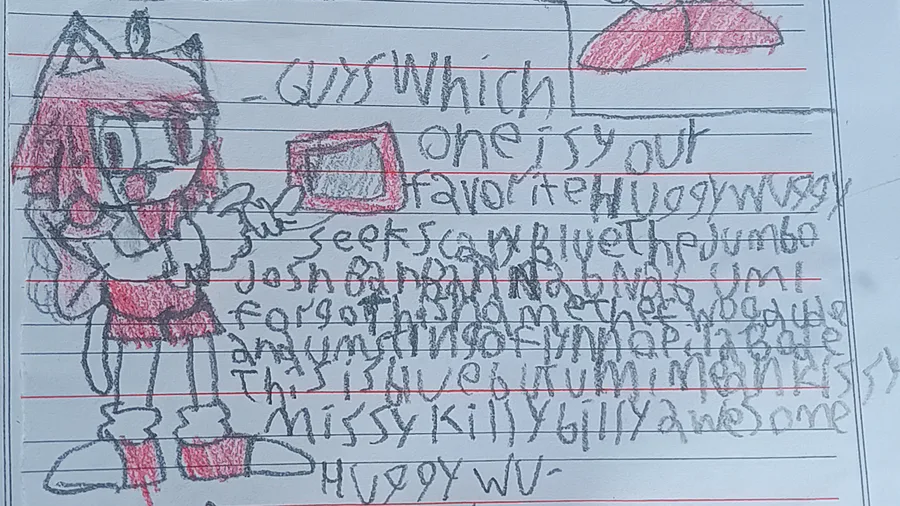 - GUYS Which
one is your
favorite Huggy Wuggy
seek scary Blue the Jumbo
Josh BanBan NabNab umi
forgot his name the
and um string o flynn
this is blue but um i mean kissy
missy killy billy awesome
Huggy WU-